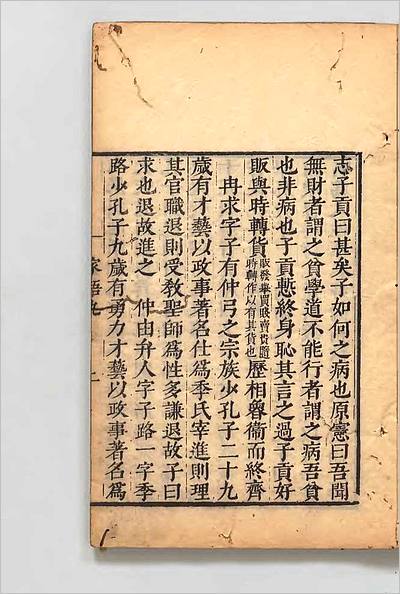 志子貢曰甚矣子如何之病也原憲曰吾聞
無財者謂之貧學道不能行者謂之病吾貧
也非病也子貢慙終身恥其言之過子貢好
販與時轉貨販發舉賣賤賣貴隨時轉作以有其貨也歷相魯衞而終齊
冉求字子有仲弓之宗族少孔子二十九
歲有才藝以政事著名仕爲季氏宰進則理
其官職退則受教聖師爲性多謙退故子曰
求也退故進之 仲由弁人字子路一字季
路少孔子九歲有勇力才藝以政事著名爲
家語九 二